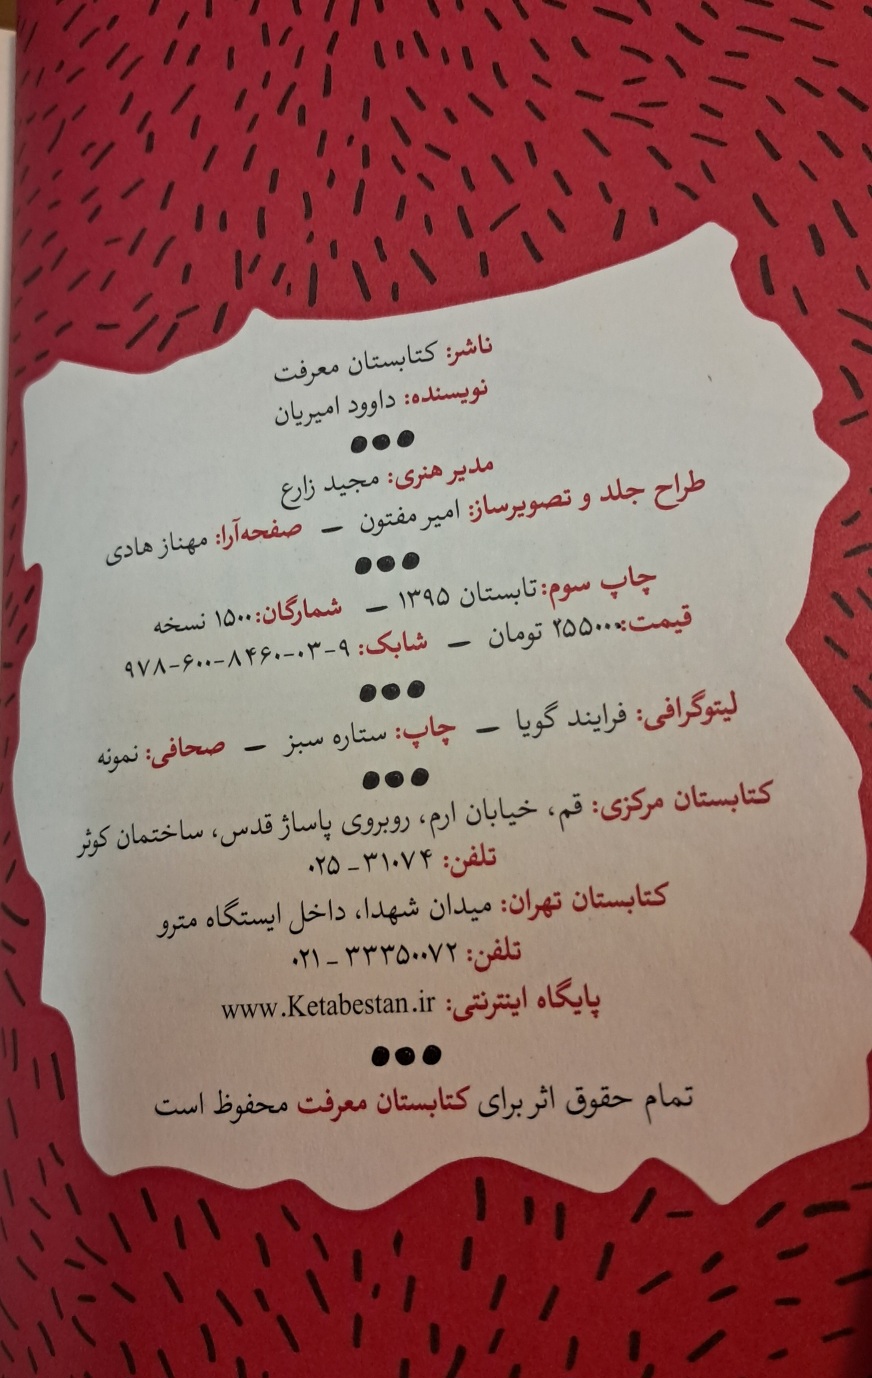 ناشر: کتابستان معرفت
نویسنده: داوود امیریان
مدیر هنری: مجید زارع
طراح جلد و تصویرساز: امیر مفتون – صفحه‌آرا: مهناز هادی
چاپ سوم: تابستان ۱۳۹۵ – شمارگان: ۱۵۰۰ نسخه
قیمت: ۲۵۵۰۰۰ تومان – شابک: ۹-۰۳-۸۴۶۰-۶۰۰-۹۷۸
لیتوگرافی: فرایند گویا – چاپ: ستاره سبز – صحافی: نمونه
کتابستان مرکزی: قم، خیابان ارم، روبروی پاساژ قدس، ساختمان کوثر
تلفن: ۳۱۰۷۴ – ۰۲۵
کتابستان تهران: میدان شهدا، داخل ایستگاه مترو
تلفن: ۳۳۳۵۰۰۷۲ – ۰۲۱
پایگاه اینترنتی: www.Ketabestan.ir
تمام حقوق اثر برای کتابستان معرفت محفوظ است